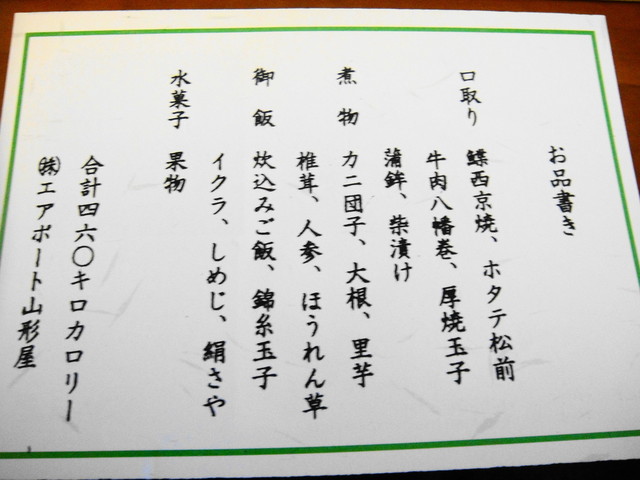 お品書き
口取り 鰈西京焼、ホタテ松前
牛肉八幡巻、厚焼玉子
蒲鉾、柴漬け
煮物 カニ団子、大根、里芋
椎茸、人参、ほうれん草
御飯 炊込みご飯、錦糸玉子
イクラ、しめじ、絹さや
水菓子 果物
合計四六〇キロカロリー
㈱エアポート山形屋